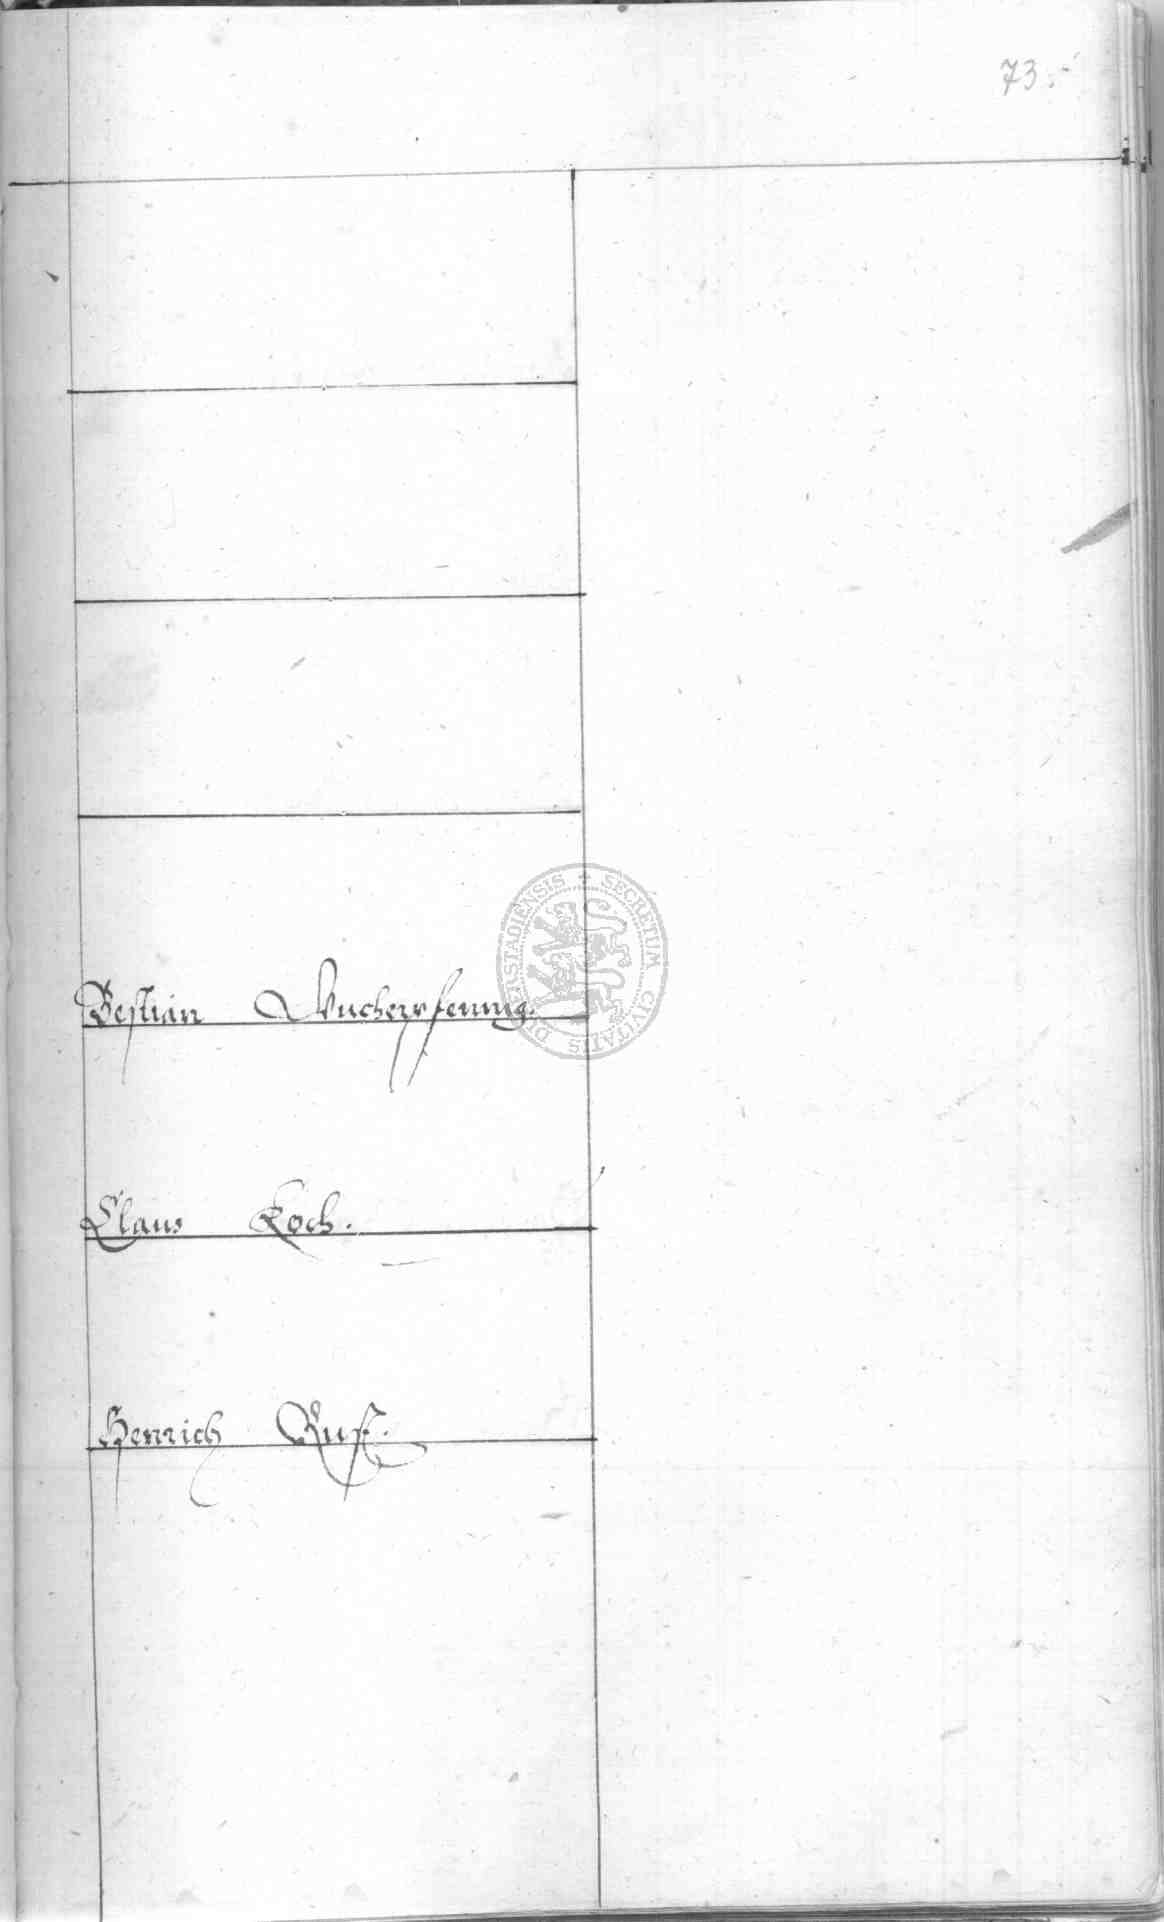 73.
Bestian Wucherpfennig.
SECRETUM CIVITATIS DUDERSTADIENSIS
Claus Koch.
Henrich